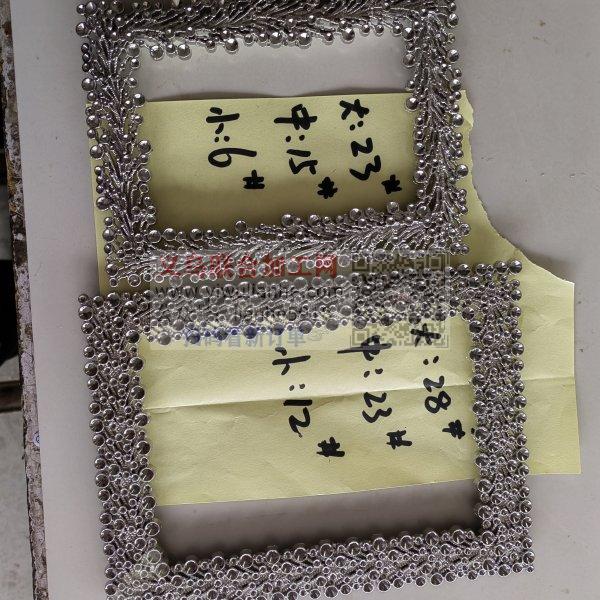 大:23#
中:15#
小:6#
义乌联合加工网
扫码看新订单
大:28#
中:23#
小:12#